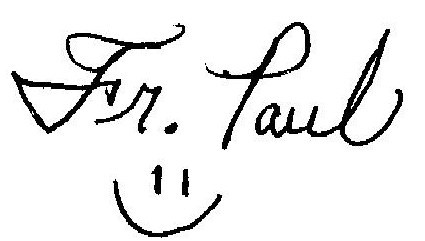 Fr. Paul